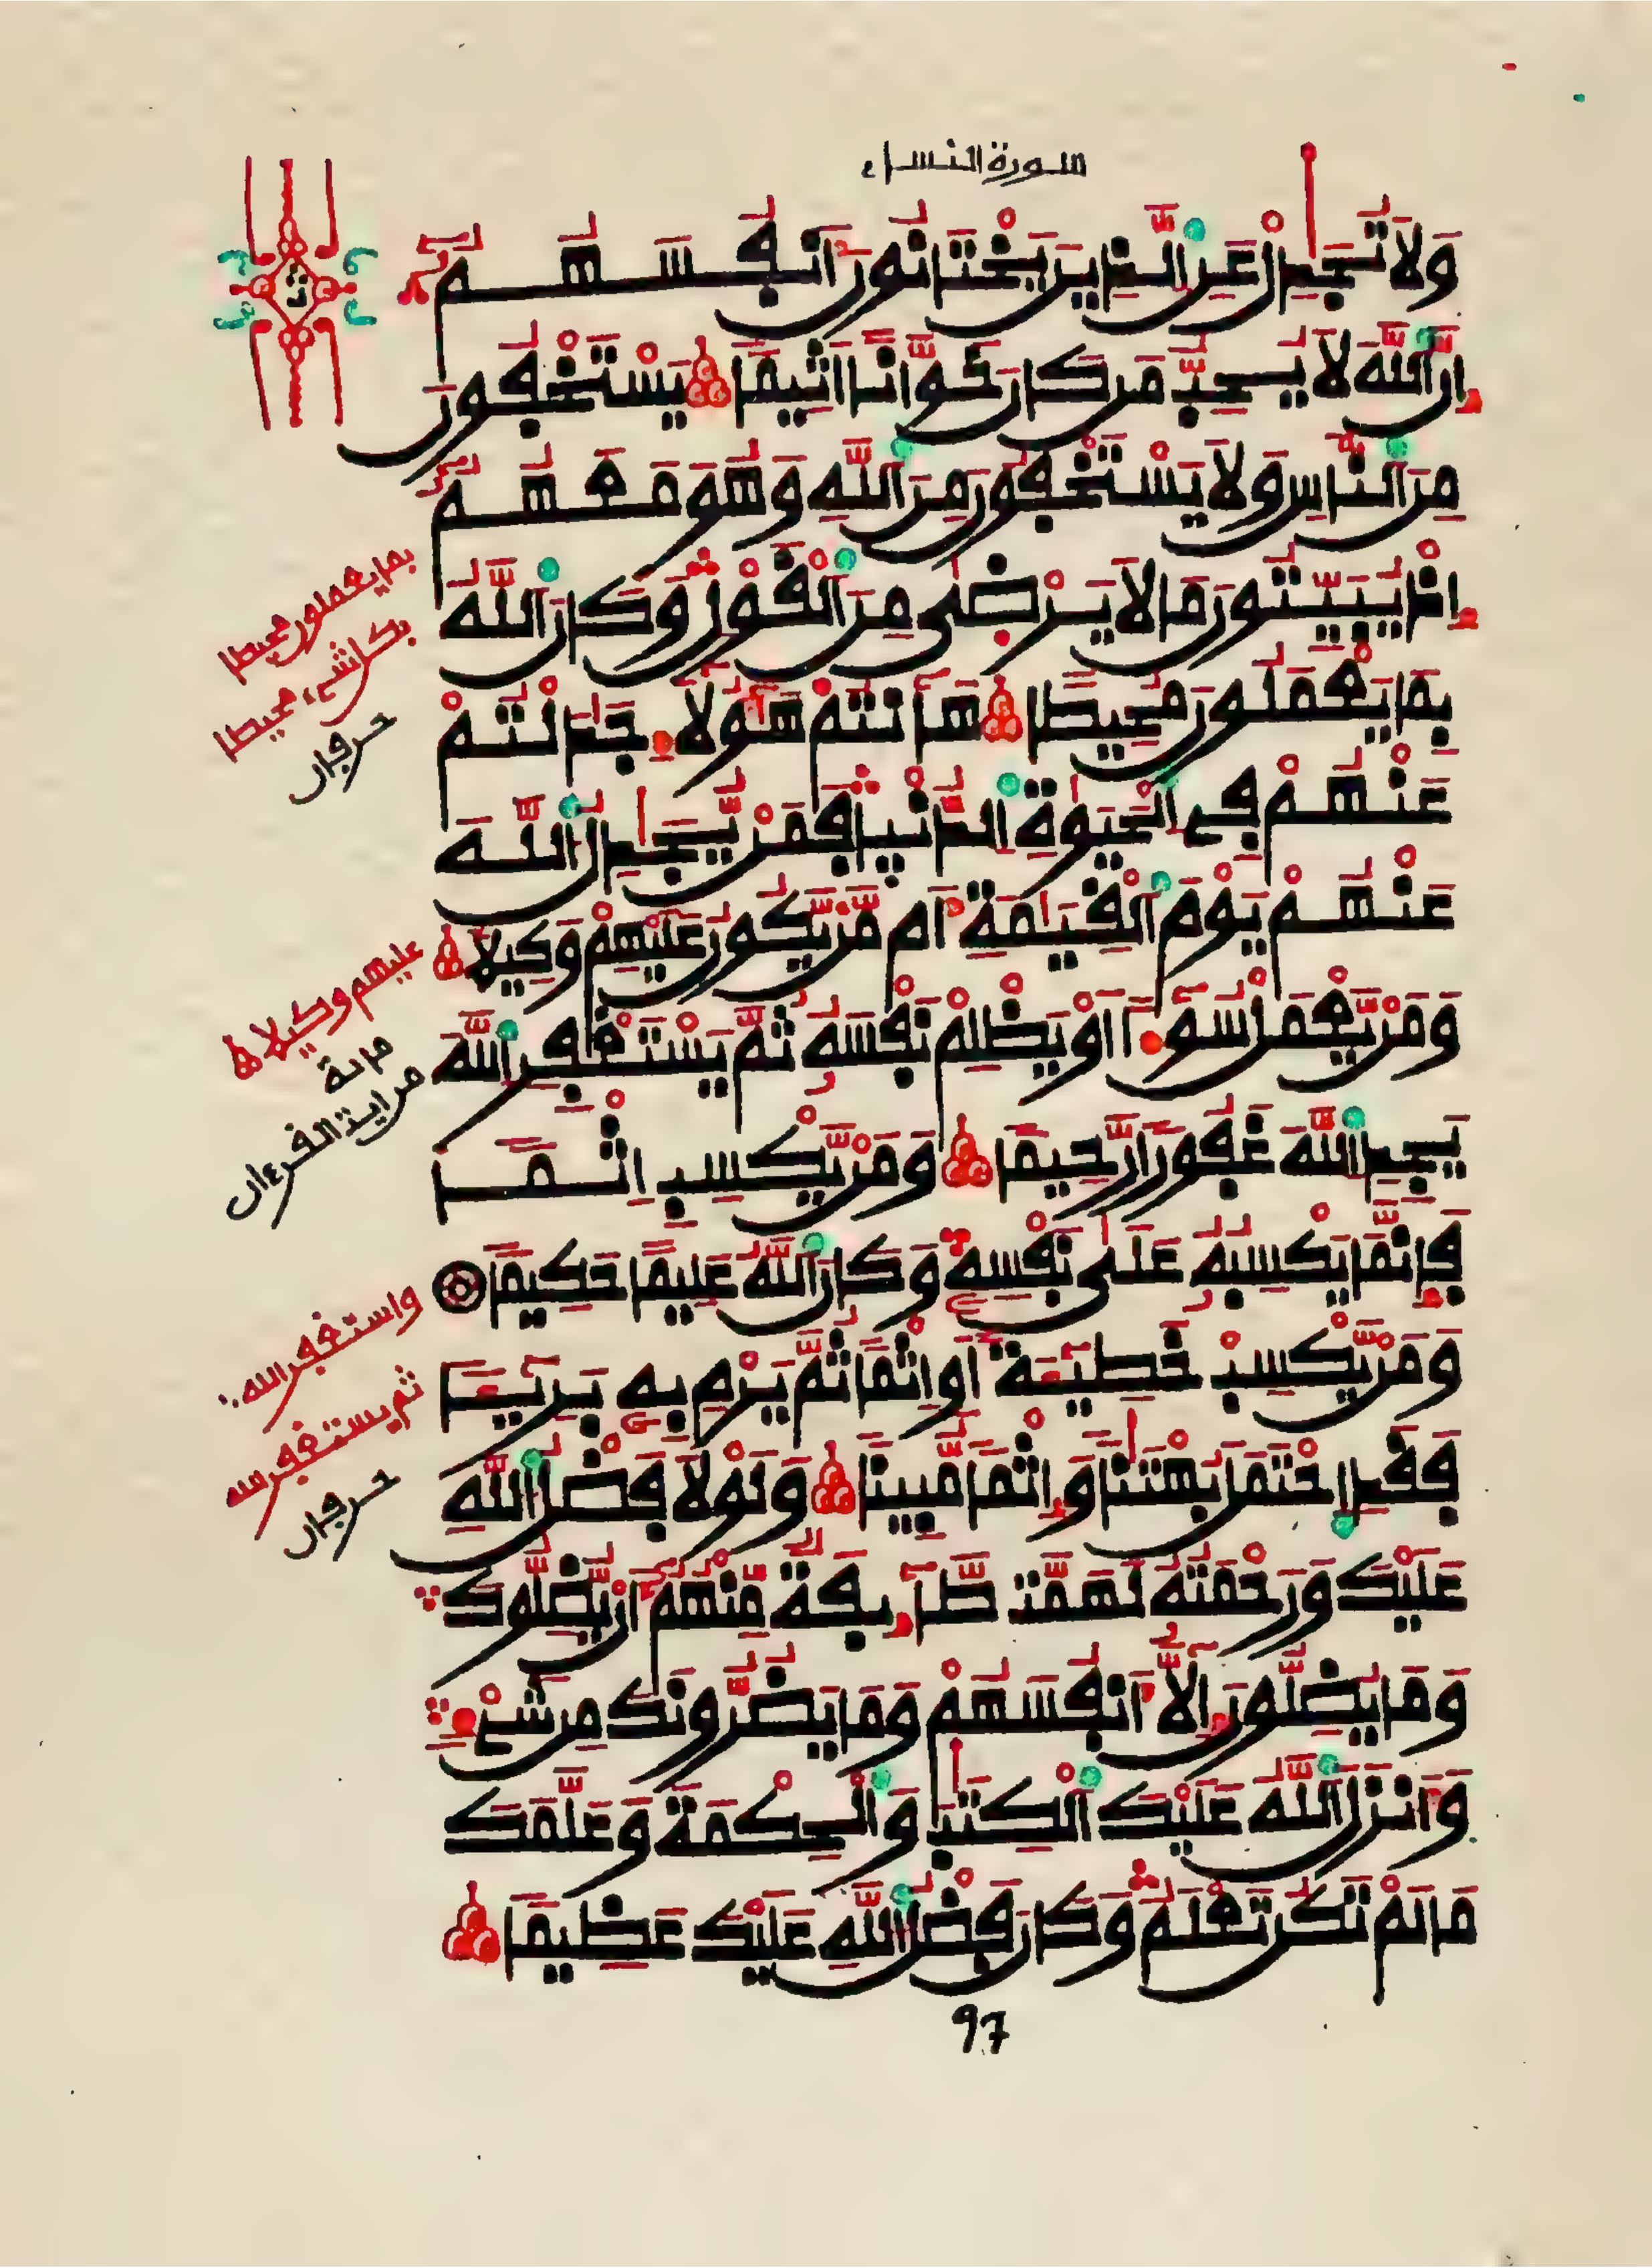 سورة النساء
وَلَا تُجَٰدِلْ عَنِ الَّذِينَ يَخْتَانُونَ أَنفُسَهُمُ
إِنَّ اللَّهَ لَا يُحِبُّ مَن كَانَ خَوَّانًا أَثِيمًا يَسْتَخْفُونَ
مِنَ النَّاسِ وَلَا يَسْتَخْفُونَ مِنَ اللَّهِ وَهُوَ مَعَهُمُ
إِذْ يُبَيِّتُونَ مَا لَا يَرْضَىٰ مِنَ الْقَوْلِ وَكَانَ اللَّهُ
بِمَا يَعْمَلُونَ مُحِيطًا هَٰأَنتُمْ هَٰؤُلَاءِ جَٰدَلْتُمْ
عَنْهُمْ فِي الْحَيَوٰةِ الدُّنْيَا فَمَنْ يُّجَٰدِلُ اللَّهَ
عَنْهُمْ يَوْمَ الْقِيَٰمَةِ أَم مَّنْ يَّكُونُ عَلَيْهِمْ وَكِيلًا
وَمَنْ يَّعْمَلْ سُوءًا أَوْ يَظْلِمْ نَفْسَهُ ثُمَّ يَسْتَغْفِرِ اللَّهَ
يَجِدِ اللَّهَ غَفُورًا رَّحِيمًا وَمَنْ يَّكْسِبْ إِثْمًا
فَإِنَّمَا يَكْسِبُهُ عَلَىٰ نَفْسِهِ وَكَانَ اللَّهُ عَلِيمًا حَكِيمًا
وَمَنْ يَّكْسِبْ خَطِيئَةً أَوِ اثْمًا ثُمَّ يَرْمِ بِهِ بَرِيئًا
فَقَدِ احْتَمَلَ بُهْتَٰنًا وَإِثْمًا مُّبِينًا وَلَوْلَا فَضْلُ اللَّهِ
عَلَيْكَ وَرَحْمَتُهُ لَهَمَّت طَّآئِفَةٌ مِّنْهُمُ أَنْ يُّضِلُّوكَ
وَمَا يُضِلُّونَ إِلَّا أَنفُسَهُمْ وَمَا يَضُرُّونَكَ مِن شَيْءٍ
وَأَنزَلَ اللَّهُ عَلَيْكَ الْكِتَٰبَ وَالْحِكْمَةَ وَعَلَّمَكَ
مَا لَمْ تَكُن تَعْلَمُ وَكَانَ فَضْلُ اللَّهِ عَلَيْكَ عَظِيمًا
97
ثن
بما يعملون محيطا
بكل شيء محيطا
حرفان
عليهم وكيلا
من اية القرءان
واستغفر الله
ثم يستغفر الله
حرفان